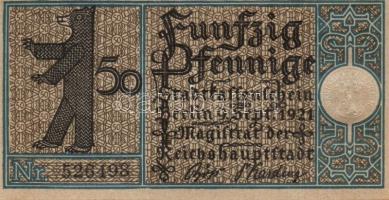 50
Fünfzig
Pfennige
Stadtkassenschein
Berlin, 9. Sept. 1921
Magistrat der
Reichshauptstadt
Nr. 526498